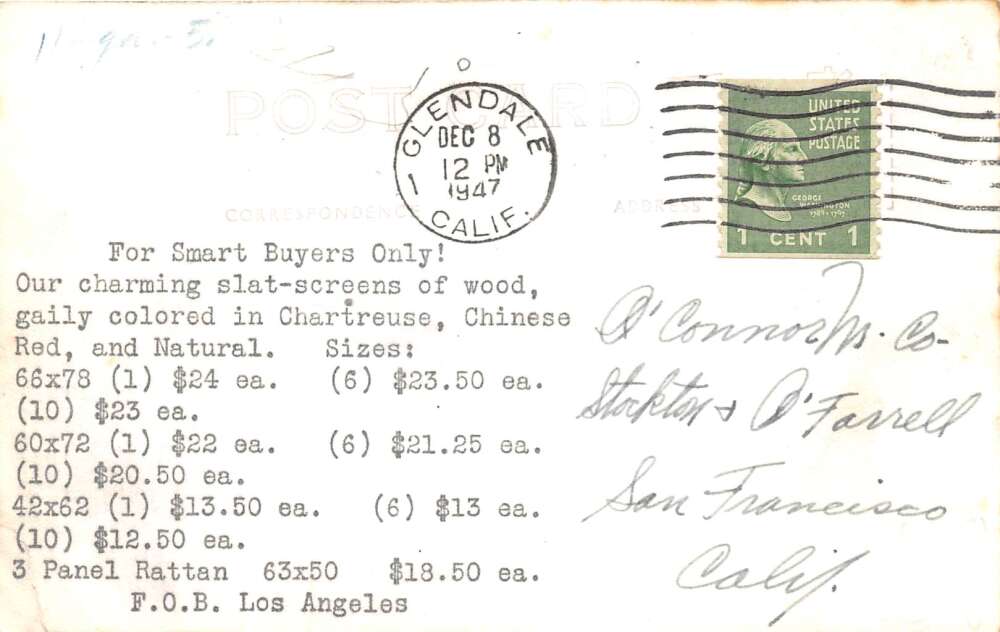 POST CARD
GLENDALE
DEC 8
12 PM
1947
1
CALIF.
UNITED
STATES
POSTAGE
GEORGE
WASHINGTON
1789-1797
1 CENT 1
CORRESPONDENCE
ADDRESS
For Smart Buyers Only!
Our charming slat-screens of wood,
gaily colored in Chartreuse, Chinese
Red, and Natural. Sizes:
66x78 (1) $24 ea. (6) $23.50 ea.
(10) $23 ea.
60x72 (1) $22 ea. (6) $21.25 ea.
(10) $20.50 ea.
42x62 (1) $13.50 ea. (6) $13 ea.
(10) $12.50 ea.
3 Panel Rattan 63x50 $18.50 ea.
F.O.B. Los Angeles
O'Connor M. Co-
Stockton & O'Farrell
San Francisco
Calif.